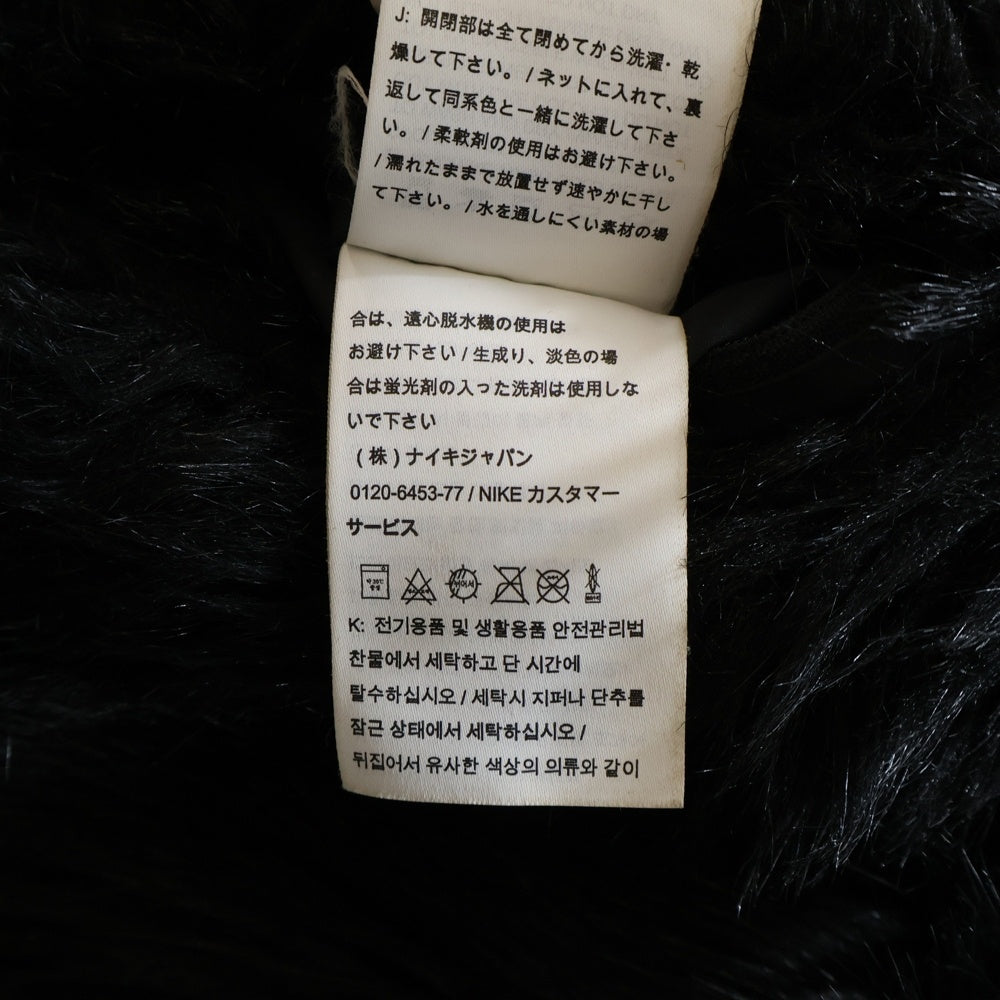 J: 開閉部は全て閉めてから洗濯・乾
燥して下さい。/ ネットに入れて、裏
返して同系色と一緒に洗濯して下さ
い。/ 柔軟剤の使用はお避け下さい。
/ 濡れたままで放置せず速やかに干し
て下さい。/ 水を通しにくい素材の場
合は、遠心脱水機の使用は
お避け下さい / 生成り、淡色の場
合は蛍光剤の入った洗剤は使用しな
いで下さい
(株) ナイキジャパン
0120-6453-77 / NIKE カスタマー
サービス
K: 전기용품 및 생활용품 안전관리법
찬물에서 세탁하고 단 시간에
탈수하십시오 / 세탁시 지퍼나 단추를
잠근 상태에서 세탁하십시오 /
뒤집어서 유사한 색상의 의류와 같이